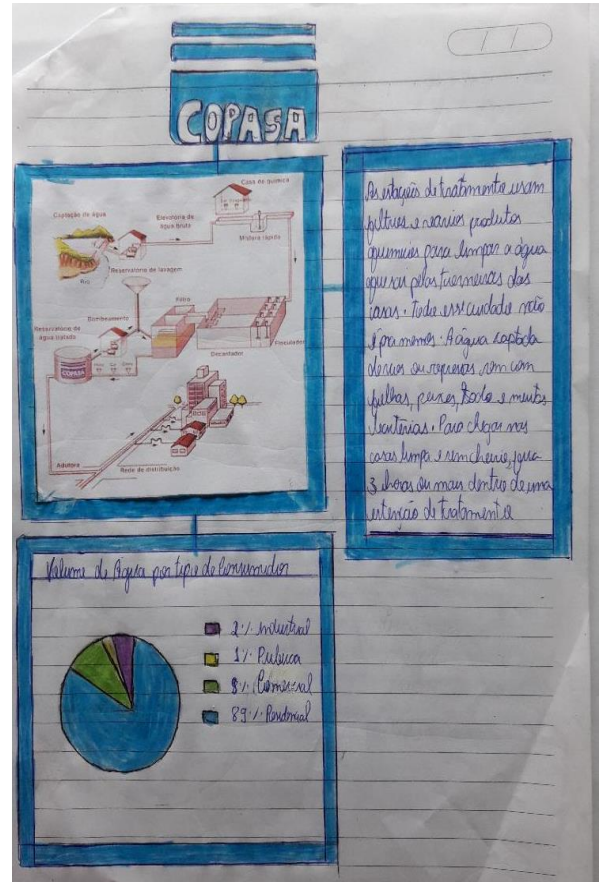 COPASA
Casa de química
Captação de água
Elevatória de água bruta
Mistura rápida
Rio
Reservatório de lavagem
Bombeamento
Filtro
Reservatório de água tratada
Floculador
COPASA
Decantador
Adutora
Rede de distribuição
As estações de tratamento usam
filtros e vários produtos
químicos para limpar a água
que sai pelas torneiras das
casas. Todo esse cuidado não
é pra menos. A água captada
de rios ou represas vem com
folhas, peixes, lodo e muitas
bactérias. Para chegar nas
casas limpa e sem cheiro,
3 horas ou mais dentro de uma
estação de tratamento
Volume de Água por tipo de Consumidor
2% industrial
1% Pública
8% Comercial
89% Residencial